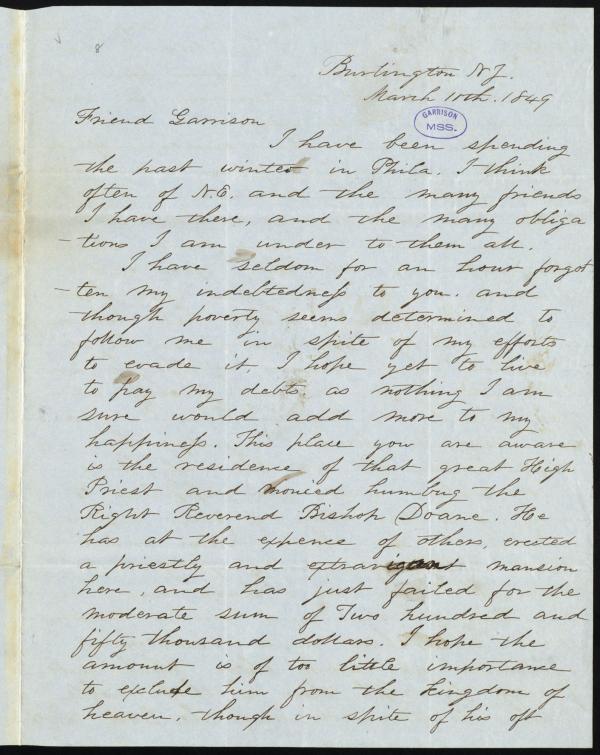 8
Burlington N.J.
March 10th. 1849
GARRISON
MSS.
Friend Garrison
I have been spending
the past winter in Phila. I think
often of N.E. and the many friends
I have there, and the many obliga
-tions I am under to them all.
I have seldom for an hour forgot
-ten my indebtedness to you. and
though poverty seems determined to
follow me in spite of my efforts
to evade it, I hope yet to live
to pay my debts, as nothing I am
sure would add more to my
happiness. This place you are aware
is the residence of that great High
Priest and monied humbug the
Right Reverend Bishop Doane. He
has at the expence of others, erected
a priestly and extravigant mansion
here, and has just failed for the
moderate sum of Two hundred and
fifty thousand dollars. I hope the
amount is of too little importance
to exclude him from the kingdom of
heaven, though in spite of his oft